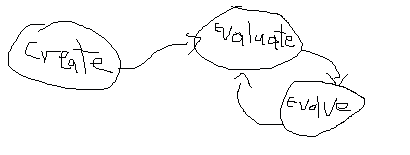 Create
Evaluate
Evalve